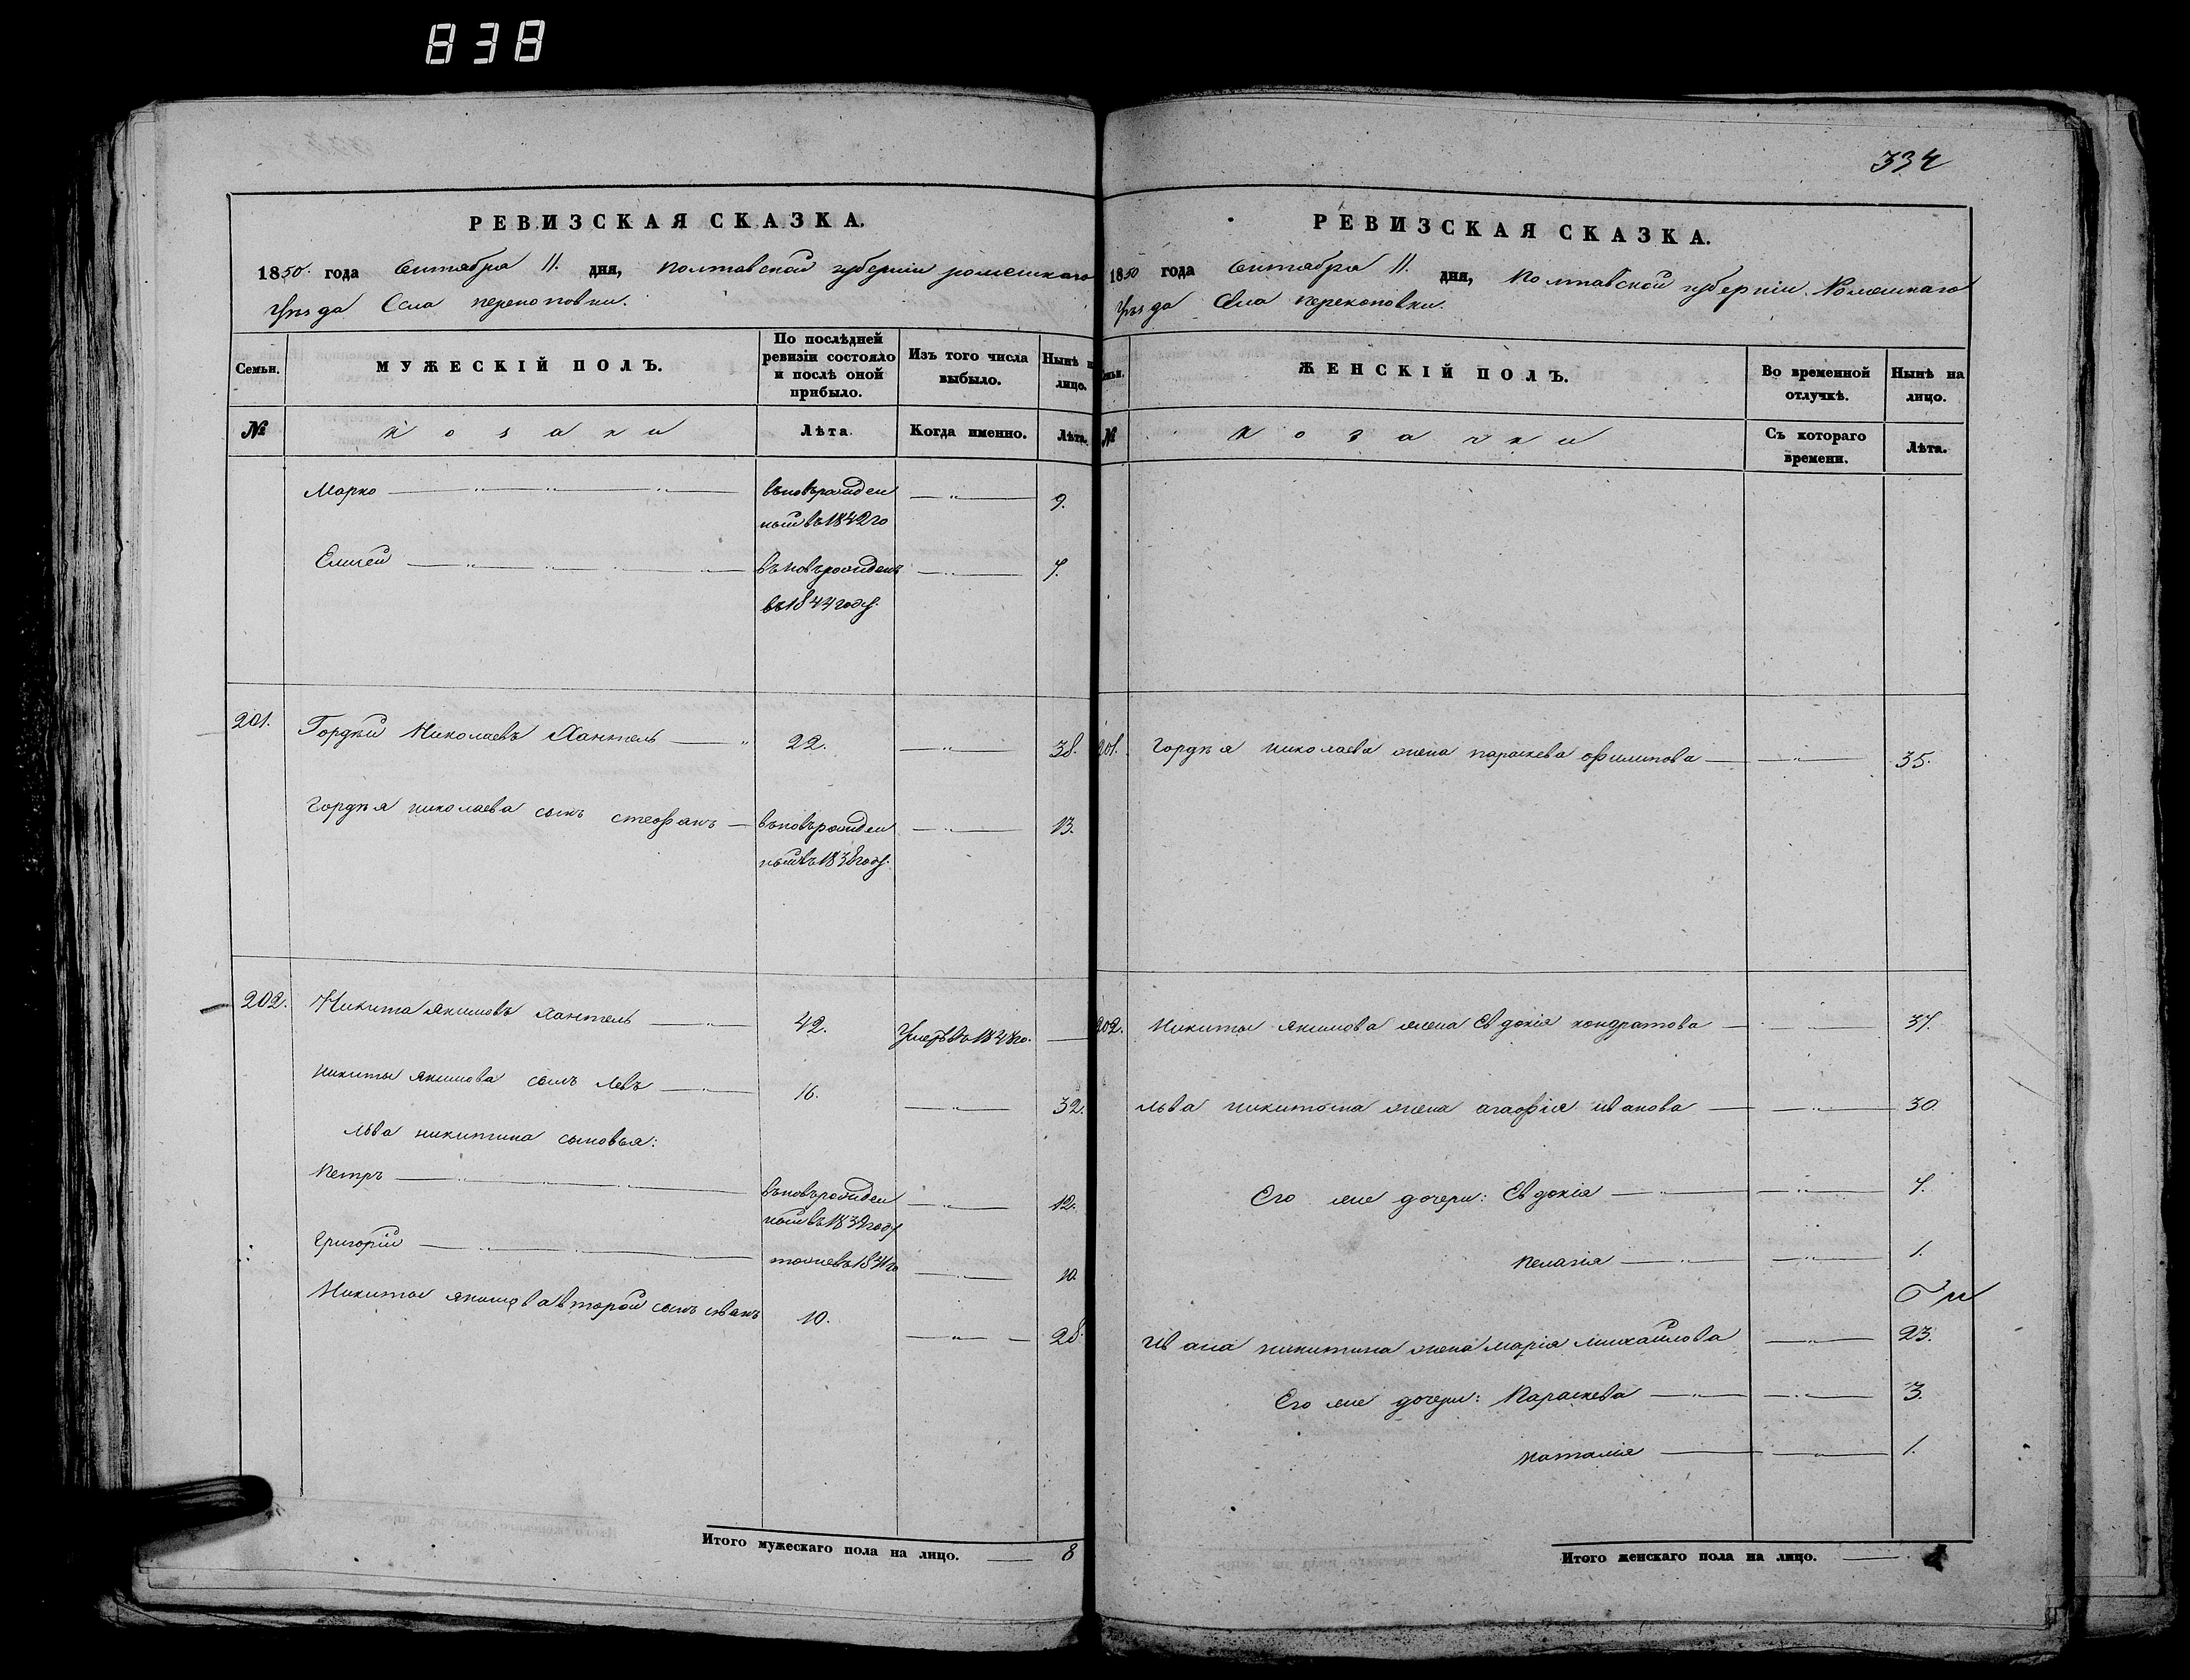 838
334
РЕВИЗСКАЯ СКАЗКА.
1850 года Сентября 11. дня, Полтавской губерніи роменскаго
Уѣзда Села перекоповки.
Семьи. МУЖЕСКІЙ ПОЛЪ. По послѣдней ревизіи состояло и послѣ оной прибыло. Изъ того числа выбыло. Нынѣ н лицо.
№ козаки Лѣта Когда именно. Лѣта.
Марко въновърожден ный въ 1842 го 9.
Елисей въновърожденъ въ 1844 году. 7.
201. Гордѣй Николаевъ 22. 38.
Гордѣя николаева сынъ стефанъ въновърожден ный въ 1838 году. 13.
202. Никита якимовъ 42. Умеръ въ 1848 го.
никиты якимова сынъ Левъ 16. 32.
льва никитина сыновья:
Петръ въновърожден ный въ 1839 году 12.
григорій тоже въ 1841 го 10.
Никиты якимова второй сынъ иванъ 10. 28.
Итого мужескаго пола на лицо. 8
РЕВИЗСКАЯ СКАЗКА.
1850 года Сентября 11. дня, Полтавской губерніи Роменскаго
Уѣзда Села перекоповки.
ЖЕНСКІЙ ПОЛЪ. Во временной отлучкѣ. Нынѣ на лицо.
№ козачки Съ котораго времени. Лѣта.
201. гордѣя николаева жена параскева филипова 35.
202. Никиты якимова жена Евдокія кондратова 37.
льва никитина жена агафія иванова 30.
Его же дочери: Евдокія 7.
пелагія 1.
ивана никитина жена марія михайлова 23.
Его же дочери: Параскева 3.
наталія 1.
Итого женскаго пола на лицо.